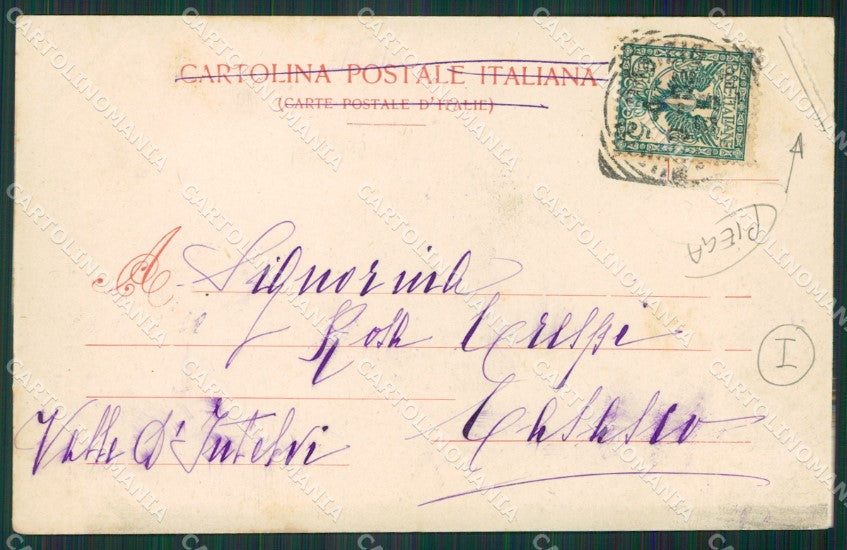 CARTOLINA POSTALE ITALIANA
(CARTE POSTALE D'ITALIE)
POSTE ITALIANE
A Signorina
Rosa Crespi
Casasco
Valle D'Intelvi
PIEGA
I
CARTOLINOMANIA